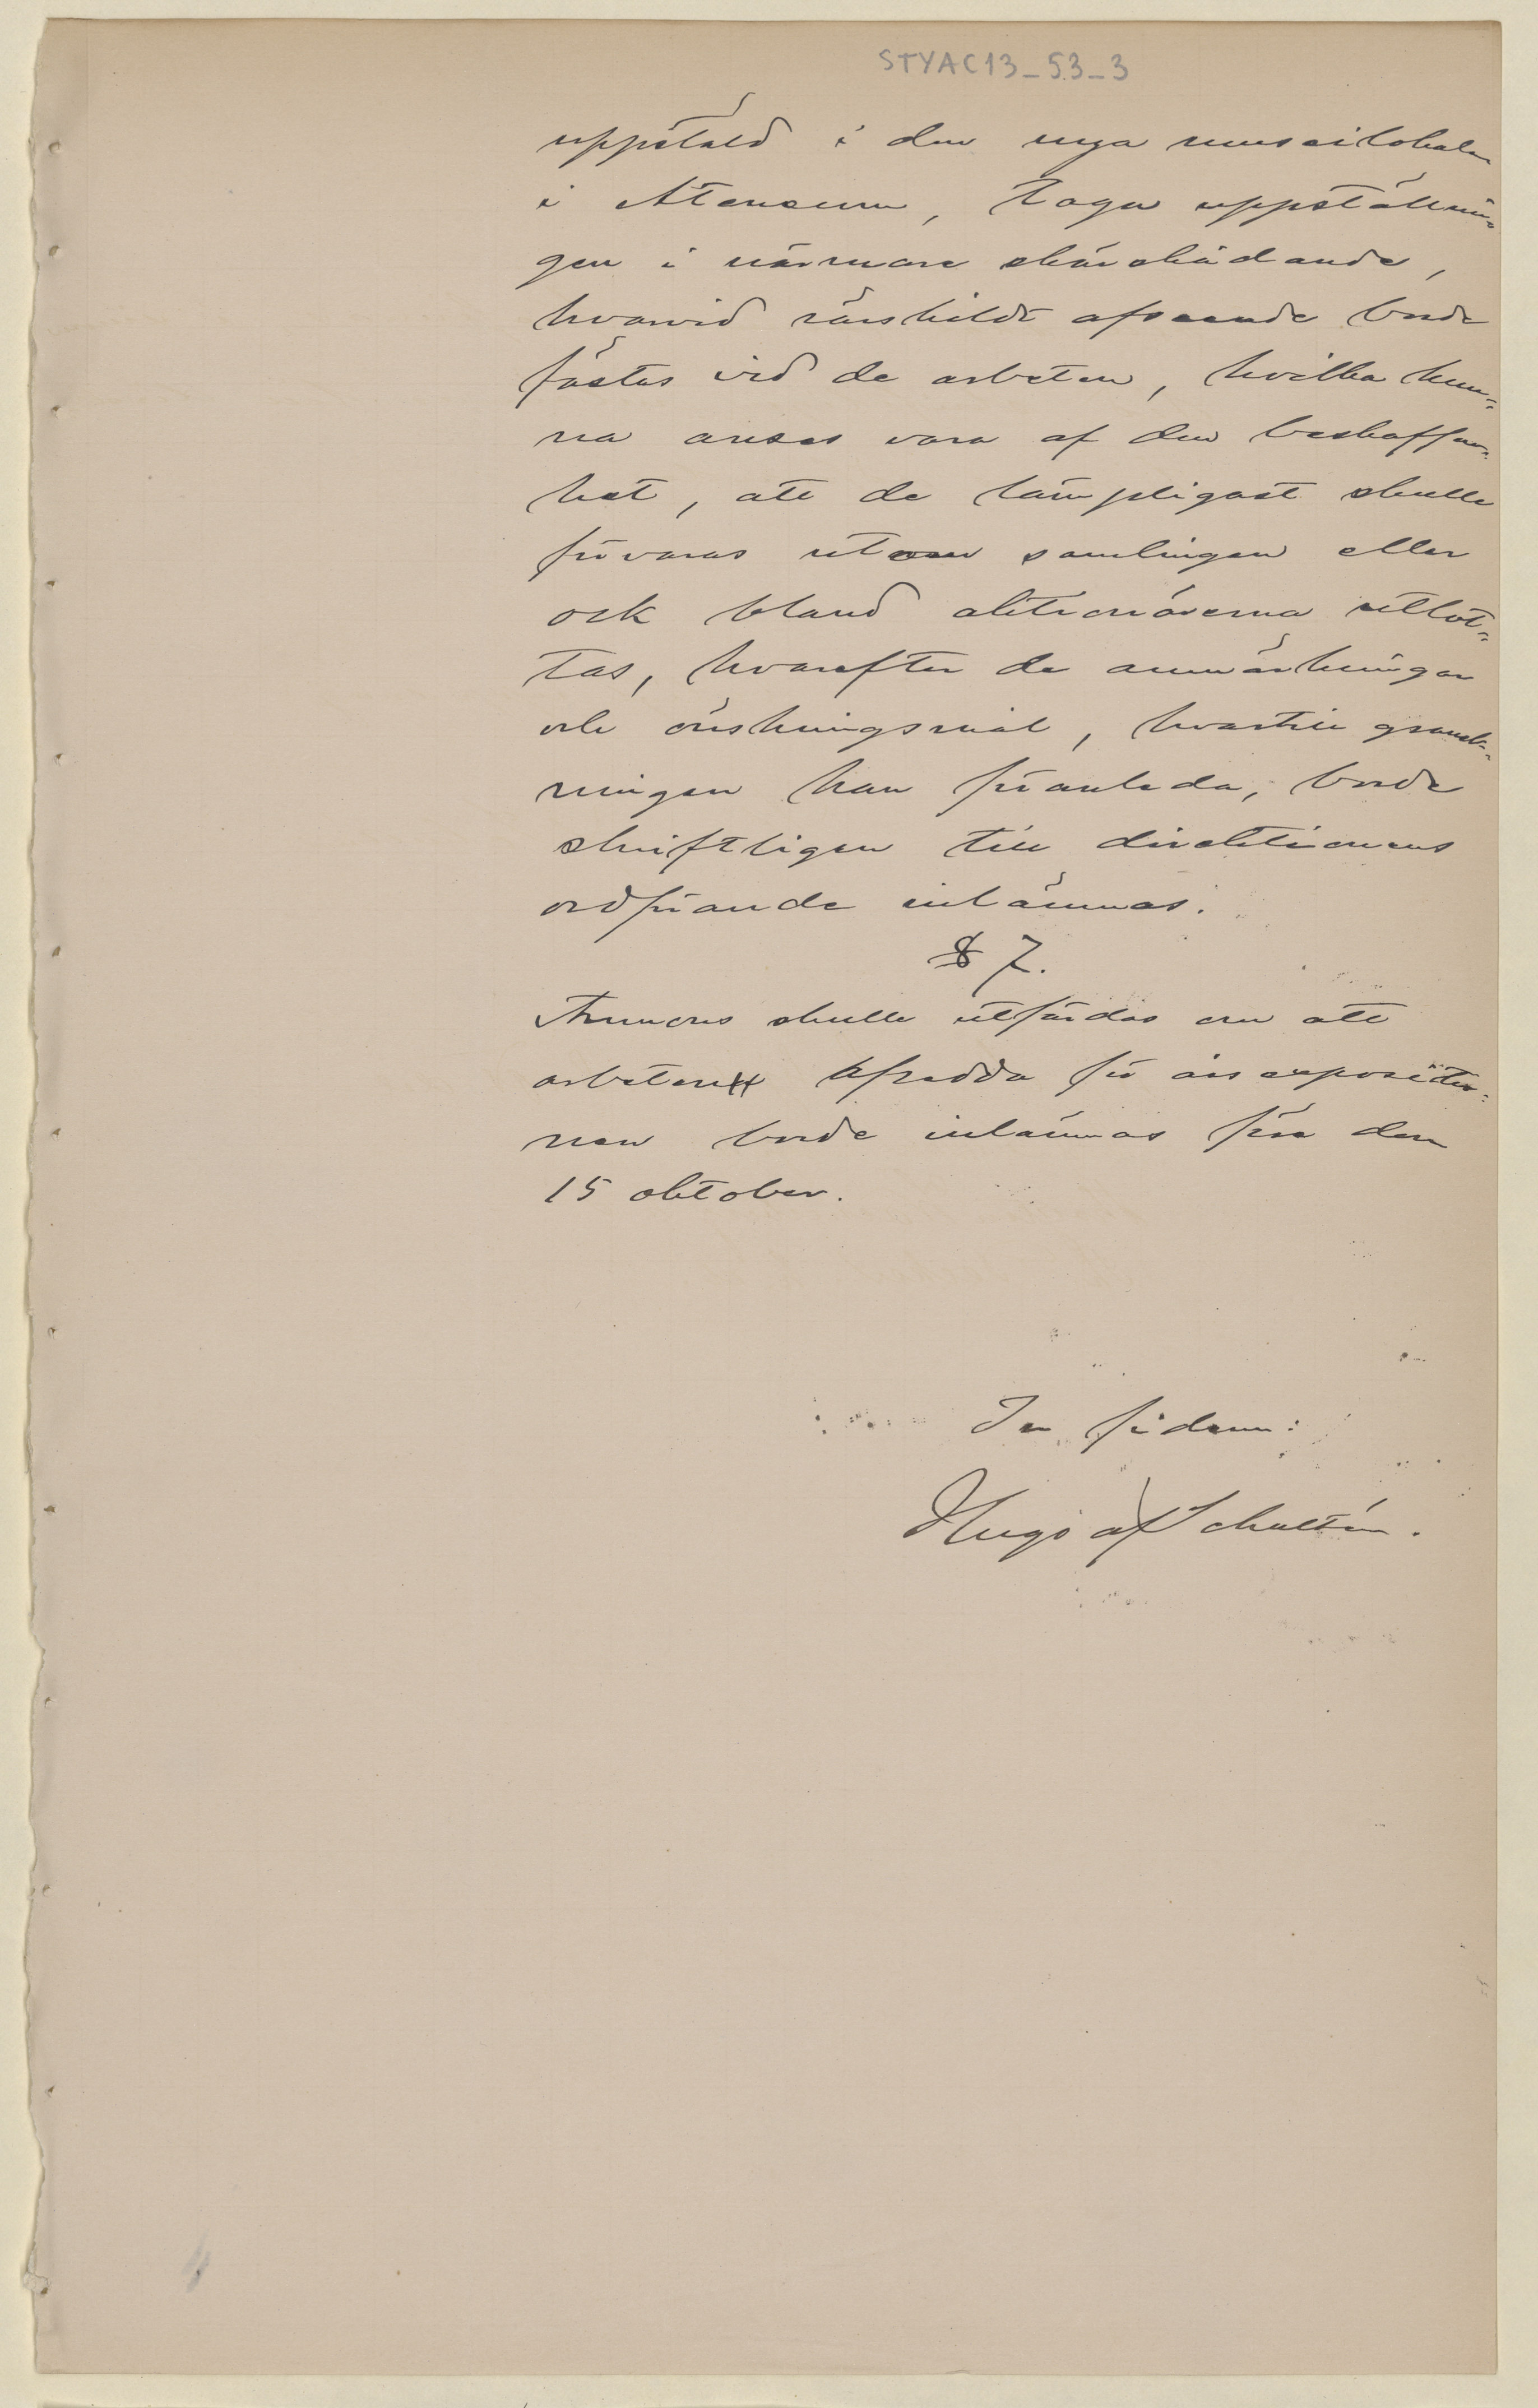 STYAC13_53_3
uppstäld i den nya museilokalen
i Ateneum, taga uppställnin-
gen i närmare skärskådande,
hvarvid särskildt afseende borde
fästas vid de arbeten, hvilka kun=
na anses vara af den beskaffen-
het, att de lämpligast skulle
förvaras utom samlingen eller
ock bland aktionärerna utlot=
tas, hvarefter de anmärkningar
och önskningsmål, hvartill gransk-
ningen kan föranleda, borde
skriftligen till direktionens
ordförande inlämnas.
§ 7.
Annons skulle utfärdas om att
arbeten afsedda för årsexpositio=
nen borde inlämnas före den
15 oktober.
In fidem:
Hugo af Schultén.